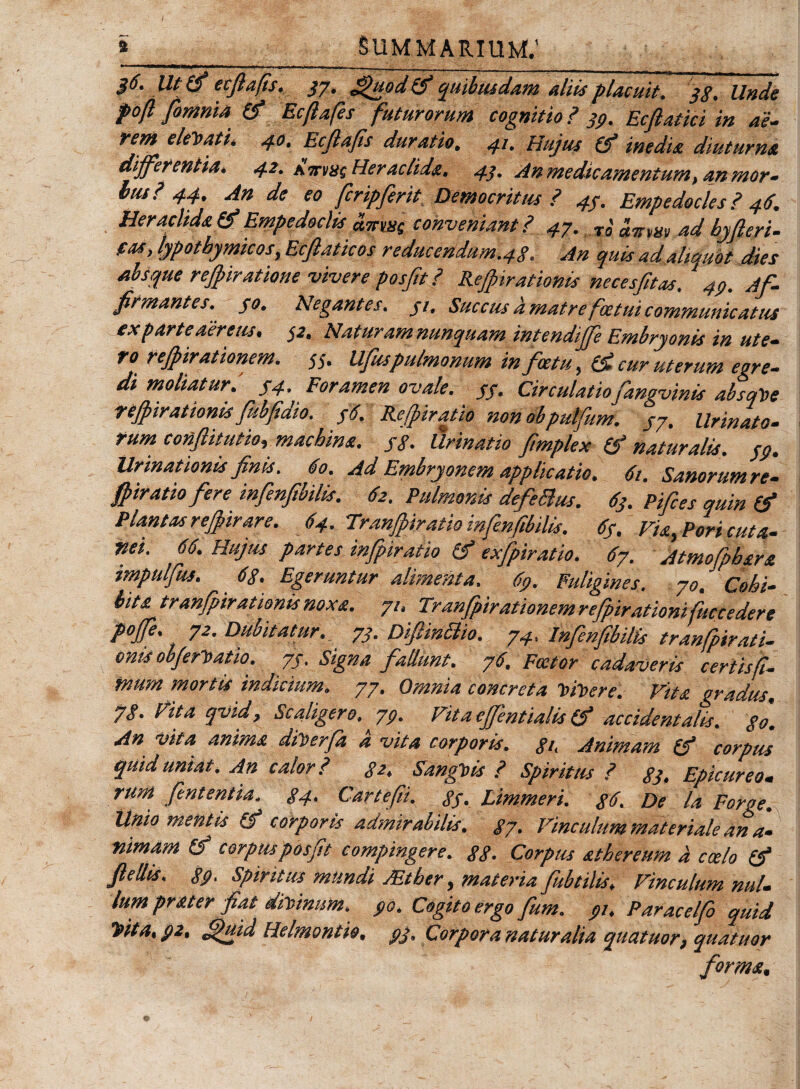 2 SUMMARIUM.
36. Ut & ecſtaſis. 37. Quod & quibusdam aliis placuit. 38. Unde
poſt ſomnia & Ecſtaſes futurorum cognitio? 39. Ecſtatici in aë-
rem elevati. 40. Ecſtaſis duratio. 41. Hujus & inediæ diuturnæ
differentia. 42. Ἄπνους Heraclidæ. 43. An medicamentum, an mor-
bus? 44. An de eo ſcripſerit Democritus? 45. Empedocles? 46.
Heraclidæ & Empedoclis ἄπνους conveniant? 47. τὸ ἄπνουν ad hyſteri-
cas, lypothymicos, Ecſtaticos reducendum. 48. An quis ad aliquot dies
absque reſpiratione vivere posſit? Reſpirationis necesſitas. 49. Af-
firmantes. 50. Negantes. 51. Succus à matre fœtui communicatus
ex parte aëreus. 52. Naturam nunquam intendiſſe Embryonis in ute-
ro reſpirationem. 53. Uſus pulmonum in fœtu, & cur uterum egre-
di moliatur. 54. Foramen ovale. 55. Circulatio ſangvinis absqve
reſpirationis ſubſidio. 56. Reſpiratio non ob pulſum. 57. Urinato-
rum conſtitutio, machinæ. 58. Urinatio ſimplex & naturalis. 59.
Urinationis finis. 60. Ad Embryonem applicatio. 61. Sanorum re-
ſpiratio fere inſenſibilis. 62. Pulmonis defectus. 63. Piſces quin &
Plantas reſpirare. 64. Tranſpiratio inſenſibilis. 65. Viæ, Pori cuta-
nei. 66. Hujus partes inſpiratio & exſpiratio. 67. Atmoſphæræ
impulſus. 68. Egeruntur alimenta. 69. Fuligines. 70. Cohi-
bitæ tranſpirationis noxæ. 71. Tranſpirationem reſpirationi ſuccedere
poſſe. 72. Dubitatur. 73. Diſtinctio. 74. Inſenſibilis tranſpirati-
onis obſervatio. 75. Signa fallunt. 76. Fœtor cadaveris certisſi-
mum mortis indicium. 77. Omnia concreta vivere. Vitæ gradus.
78. Vita qvid, Scaligero. 79. Vita eſſentialis & accidentalis. 80.
An vita animæ diverſa à vita corporis. 81. Animam & corpus
quid uniat. An calor? 82. Sangvis? Spiritus? 83. Epicureo-
rum ſententia. 84. Carteſii. 85. Limmeri. 86. De la Forge.
Unio mentis & corporis admirabilis. 87. Vinculum materiale an a-
nimam & corpus posſit compingere. 88. Corpus æthereum à cœlo &
ſtellis. 89. Spiritus mundi Æther, materia ſubtilis. Vinculum nul-
lum præter fiat divinum. 90. Cogito ergo ſum. 91. Paracelſo quid
vita. 92. Quid Helmontio. 93. Corpora naturalia quatuor, quatuor
formæ.